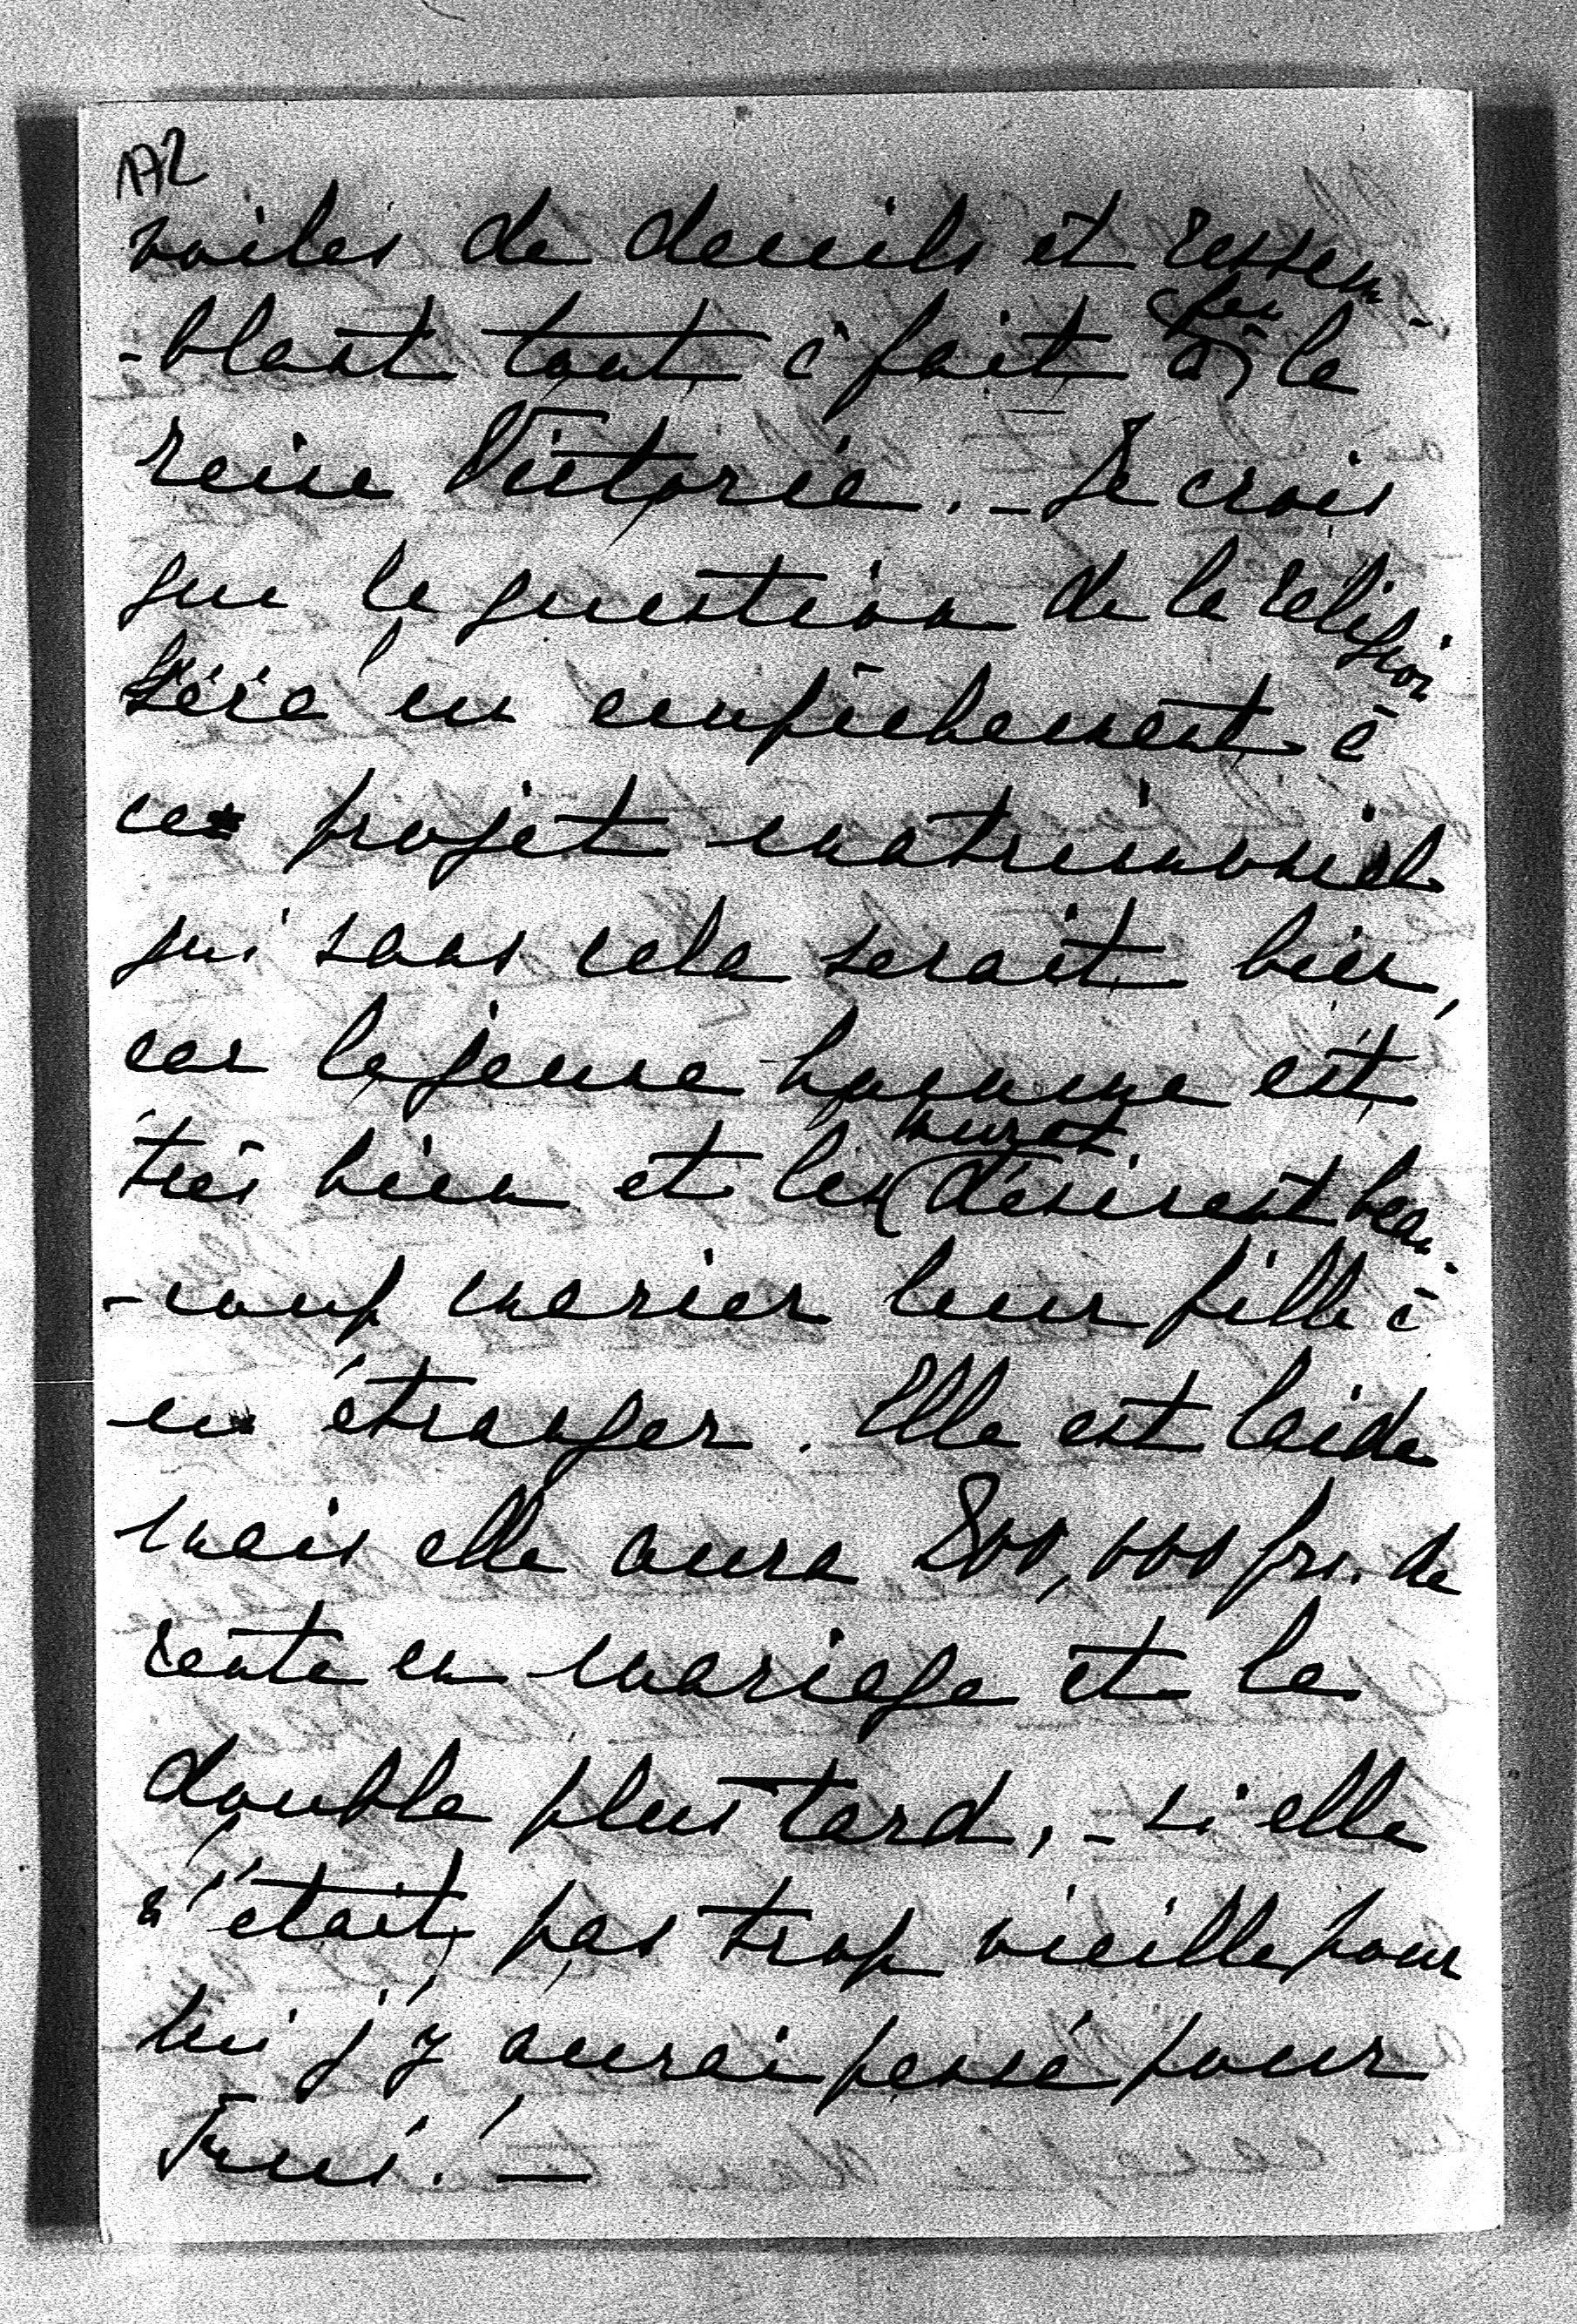 172
voiles de deuils et ressem
-blant tout à fait à feu la
reine Victoria. _ Je crois
que la question de la religion
sera un empêchement à
ce projet matrimonial
qui sans cela serait bien,
car le jeune homme est
très bien et les Murat désirent beau
-coup marier leur fille à
un étranger. Elle est laide
mais elle aura 800,000 frs. de
rente en mariage et le
double plus tard, _ si elle
n'était pas trop vieille pour
lui j'y aurai pensé pour